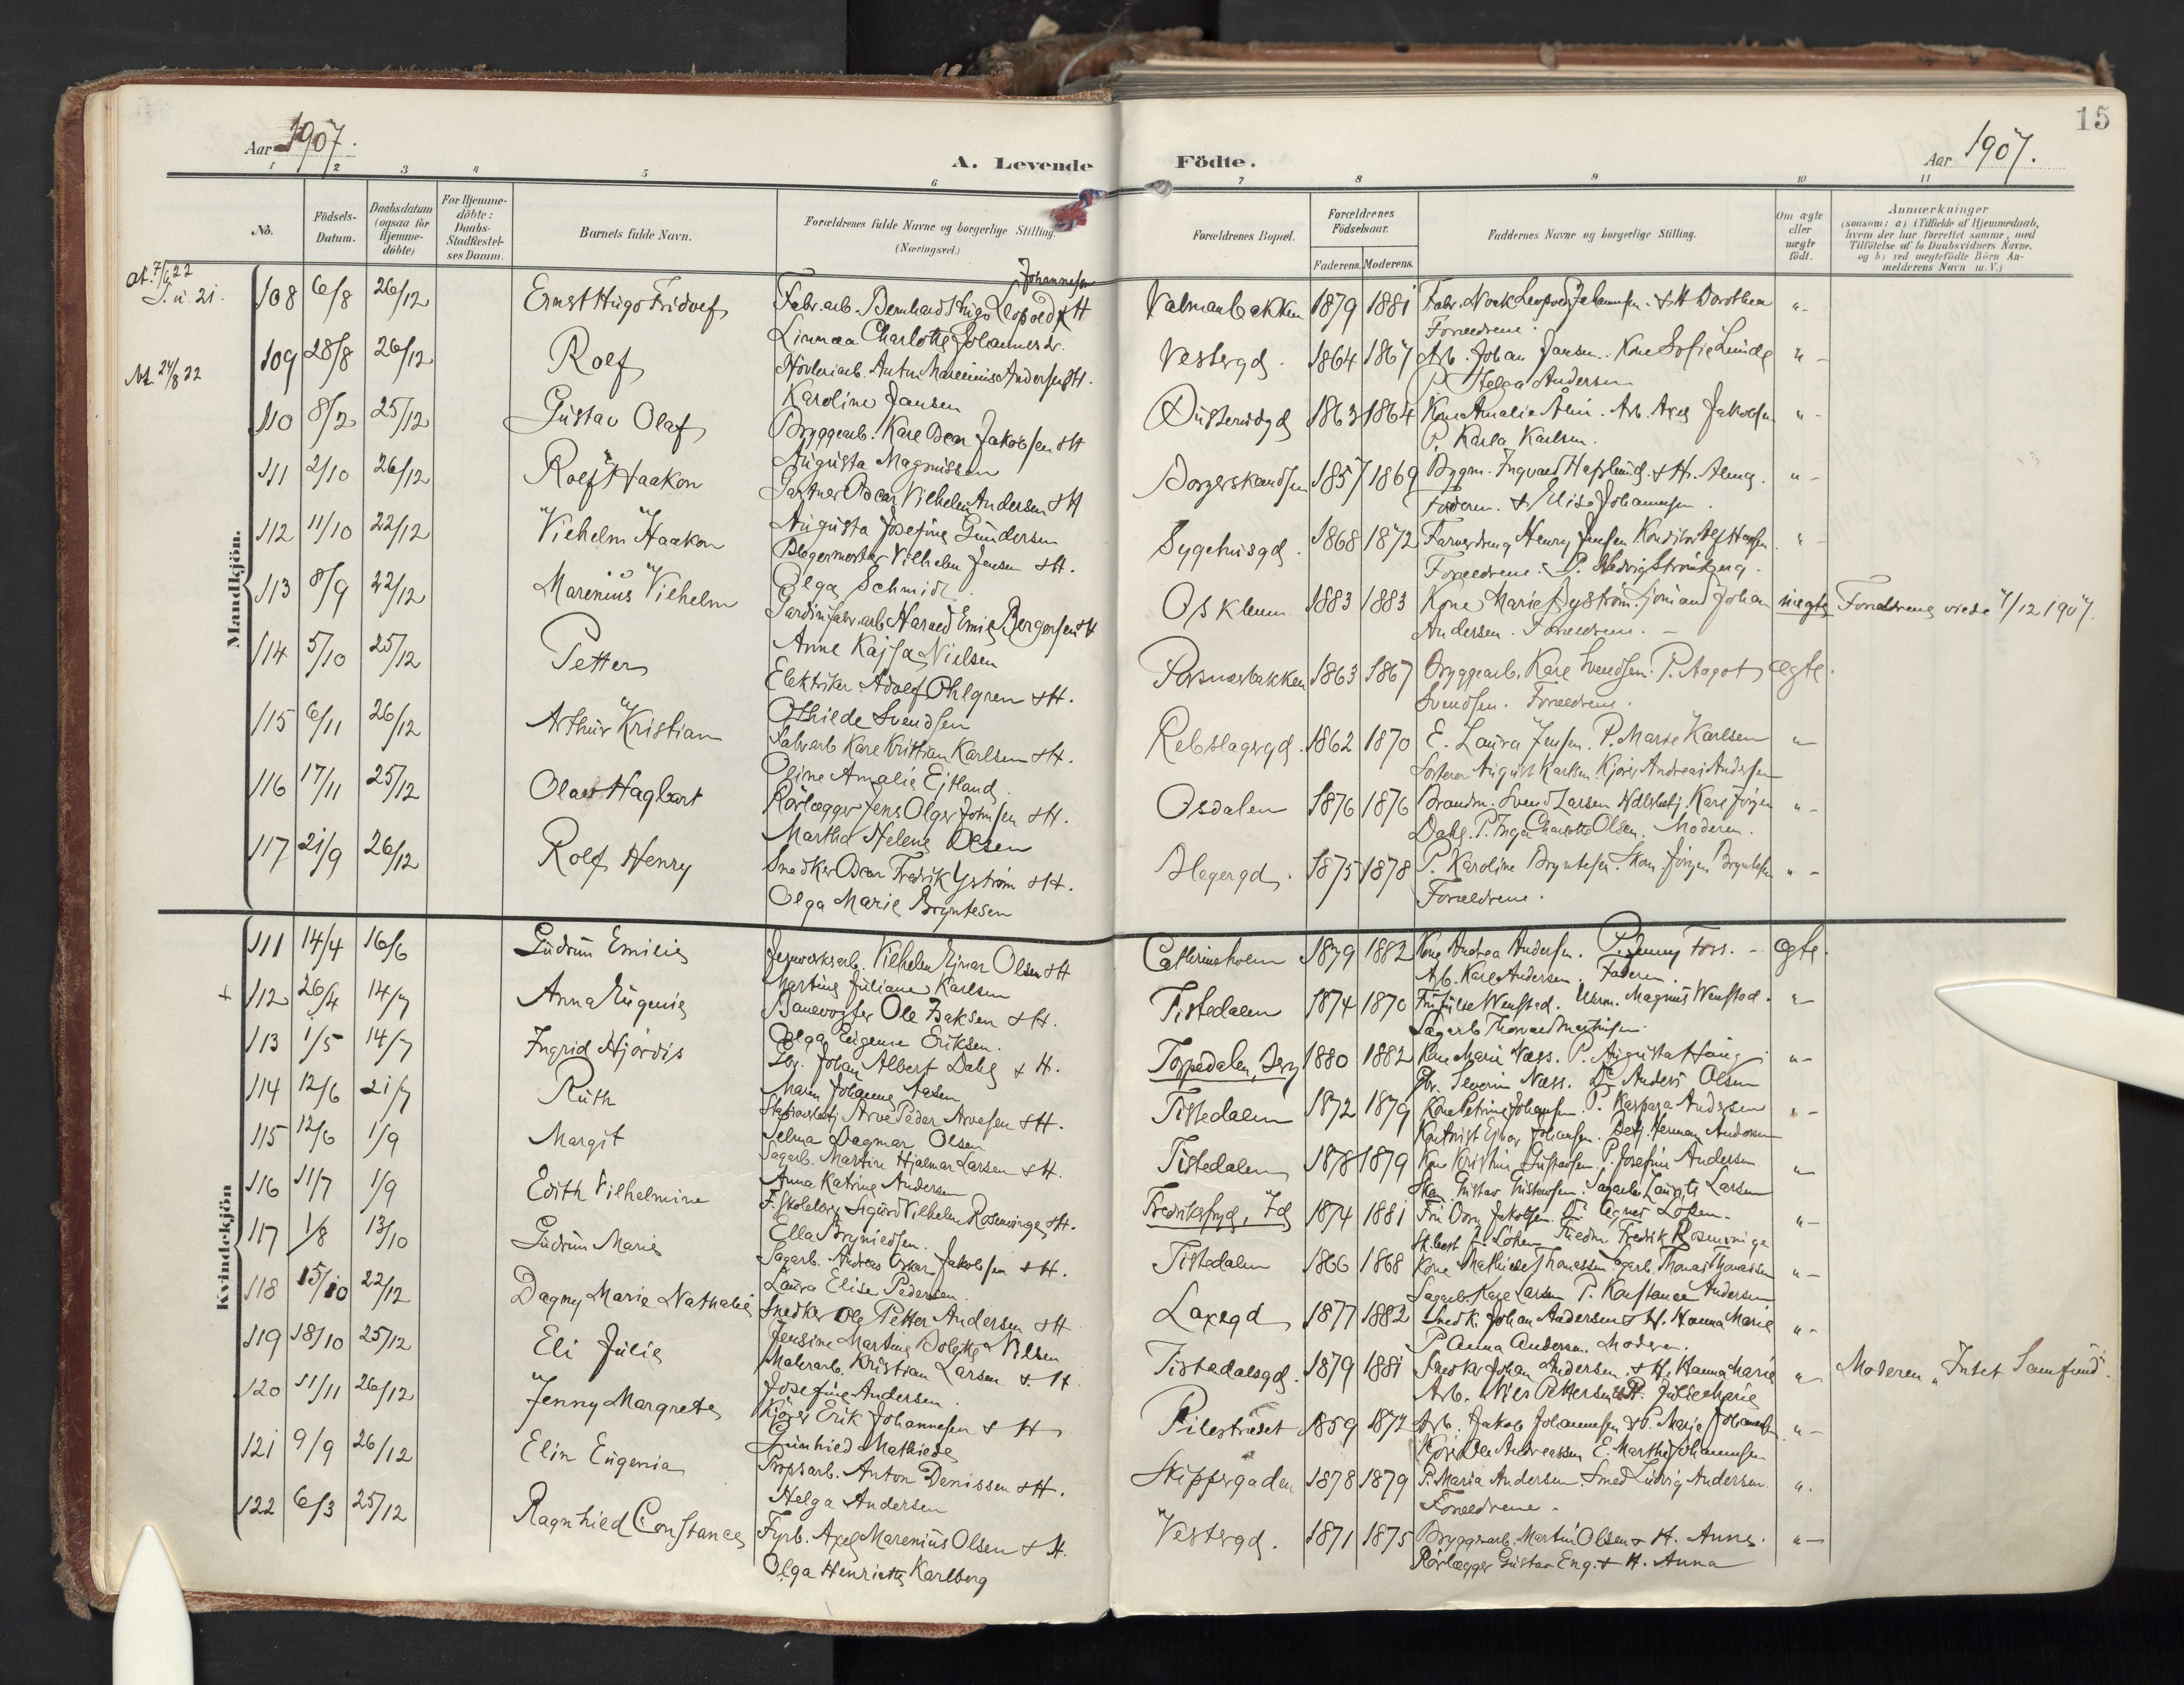 15
Aar 1907.
A. Levende Födte.
Aar 1907.
1 2 3 4 5 6 7 8 9 10 11
No.
Födsels-Datum.
Daabsdatum (ogsaa for Hjemme-döbte)
For Hjemme-döbte: Daabs-Stadfæstel-ses Datum.
Barnets fulde Navn.
Forældrenes fulde Navne og borgerlige Stilling.
(Næringsvei.)
Forældrenes Bopæl.
Forældrenes Födselsaar.
Faderens. Moderens.
Faddernes Navne og borgerlige Stilling.
Om ægte eller uægte födt.
Anmærkninger
(saasom: a) i Tilfælde af Hjemmedaab, hvem der har forrettet samme, med Tilföielse af to Daabsvidners Navne. og b) ved uægtefödte Börn An-melderens Navn m. V.)
Mandkjön.
At. 7/6 22
108 6/8 26/12 Ernst Hugo Fridolf Fabr.arb. Bernhard Hugo Leopold Johannesen & H Valmanbakken 1879 1881
Linnæa Charlotte Johannesdr. Forældrene.
Att. 24/8 22
109 28/8 26/12 Rolf Hövleriarb. Anton Marenius Andersen & H. Vestergd. 1864 1867 Arb. Johan Jansen. Kone Sofie Lunde
Karoline Jansen P. Helga Andersen
110 8/2 25/12 Gustav Olaf Bryggearb. Karl Oscar Jakobsen & H 1863 1864 Kone Amalie Arb. Axel Jakobsen
Augusta Magnussen P. Karla Karlsen.
111 2/10 26/12 Rolf Haakon Gartner Oscar Vilhelm Andersen & H 1857 1869 Bygm. Ingvald & H.
Augusta Josefine Gundersen Faderen. & Elise Johannesen.
112 11/10 22/12 Vilhelm Haakon Bagermester Vilhelm Jensen & H. Sygehusgd. 1868 1872 Farversvend Henry Jensen
Olga Schmidt. Forældrene. P. Hedvig Strömberg.
113 8/9 22/12 Marenius Vilhelm Gardinfabr.arb. Harald Emil Borgersen & H Osklum 1883 1883 Kone Marie Nyström. Sjömand Johan uægte Forældrene viede 7/12 1907.
Anne Kajsa Nielsen Andersen. Forældrene.
114 5/10 25/12 Petter Elektriker Adolf Ohlgren & H. Porsnæsbakken 1863 1867 Bryggearb. Karl Svendsen. P. Aagot ægte.
Othilde Svendsen Svendsen. Forældrene.
115 6/11 26/12 Arthur Kristian Fabrarb Karl Kristian Karlsen & H. Rebslagergd. 1862 1870 E. Laura Jensen. P. Marie Karlsen
Oline Amalie Eitland. August Karlsen. Kjörer Andreas Andersen
116 17/11 25/12 Olaf Hagbart Rörlægger Jens Olger Johnsen & H. Osdalen 1876 1876 Brandm. Svend Larsen Hdlsbetj. Karl Jörgen
Martha Helene Olsen Dahl. P. Inga Charlotte Olsen. Moderen.
117 21/9 26/12 Rolf Henry Snedker Oscar Fredrik Yström & H. Hagergd. 1875 1878 P. Karoline Bryntesen. Skom. Jörgen Bryntesen
Olga Marie Bryntesen Forældrene.
Kvindekjön
111 14/4 16/6 Gudrun Emilie Jernverksarb. Vilhelm Ejnar Olsen & H Cathrineholm 1879 1882 Kone Andrea Andersen. P. Jenny Foss. ægte.
Martine Juliane Karlsen Arb. Karl Andersen. Faderen.
+ 112 26/4 14/7 Anna Eugenie Banevogter Ole Isaksen & H. Tistedalen 1874 1870 Fru Julie Wenstad. Urm. Magnus Wenstad.
Olga Eugenie Eriksen. Sagarb Thorvald Martinsen.
113 1/5 14/7 Ingrid Hjördis Johan Albert Dahl & H. Torpedalen, Berg 1880 1882 Kone Marie Næss. P. Augusta Haug
Maren Johanne Aasen Gbr. Severin Næss. Do Anders Olsen
114 12/6 21/7 Ruth Stationsbetj Arve Peder Arvesen & H. Tistedalen 1872 1879 Kone Petrine Johansen. P. Kaspara Andersen
Selma Dagmar Olsen Kontorist Ejvar Johansen. Betj. Herman Andersen
115 12/6 1/9 Margit Sagarb. Martin Hjalmar Larsen & H. Tistedalen 1878 1879 Kone Kristine Gustavsen. P. Josefine Andersen
Anna Katrine Andersen Skom. Gustav Gustavsen. Sagarb. Laurits Larsen
116 11/7 1/9 Edith Vilhelmine F. skolelærer Sigurd Vilhelm Rosenvinge & H. Fredriksfryd, Id 1874 1881 Fru Jakobsen. Do Agnes Löken.
Ella Bryniedsen. Fredrik Rosenvinge
117 1/8 13/10 Gudrun Marie Sagarb. Andreas Oskar Jakobsen & H. Tistedalen 1866 1868 Kone Mathilde Thomassen. Sagarb. Thomas Thomassen
Laura Elise Pedersen. Sagarb. Karl Larsen P. Konstance Andersen
118 15/10 22/12 Dagny Marie Nathalie Snedker Ole Petter Andersen & H Laxegd 1877 1882 Snedk. Johan Andersen & H. Hanna Marie
Jensine Martine Bolette Nilsen P. Anna Andersen. Moderen.
119 18/10 25/12 Eli Julie Malerarb. Kristian Larsen & H. Tistedalsgd. 1879 1881 Snedker Johan Andersen & H. Hanna Marie Moderen "Intet Samfund".
Josefine Andersen. Arb. Nils Pettersen & H. Julie Marie
120 11/11 26/12 Jenny Margrete Kjörer Erik Johannesen & H Pilestrædet 1859 1872 Arb. Jakob Johannesen & P. Marie Johannesen
Gunhild Mathilde Kjörer Ole Andreassen E. Marthe Johannesen
121 9/9 26/12 Elin Eugenia Propsarb. Anton Denissen & H. Skippergaden 1878 1879 P. Maria Andersen. Smed Ludvig Andersen.
Helga Andersen Forældrene.
122 6/3 25/12 Ragnhild Constance Fyrb. Axel Marenius Olsen & H. Vestergd. 1871 1875 Bryggearb. Martin Olsen & H. Anne.
Olga Henriette Karlberg Rörlægger Gustav Eng. & H. Anna